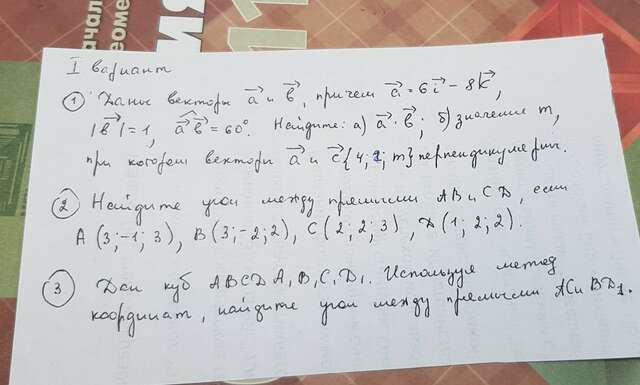 начал
геоме
ИЯ
11
I вариант
① Даны векторы a⃗ и b⃗, причем a⃗ = 6i⃗ − 8k⃗,
|b⃗| = 1, a⃗^b⃗ = 60°. Найдите: а) a⃗ · b⃗; б) значение m,
при котором векторы a⃗ и c⃗{4; 1; m} перпендикулярны.
② Найдите угол между прямыми AB и CD, если
A (3; -1; 3), B (3; -2; 2), C (2; 2; 3), D (1; 2; 2).
③ Дан куб ABCDA₁B₁C₁D₁. Используя метод
координат, найдите угол между прямыми AC и BD₁.